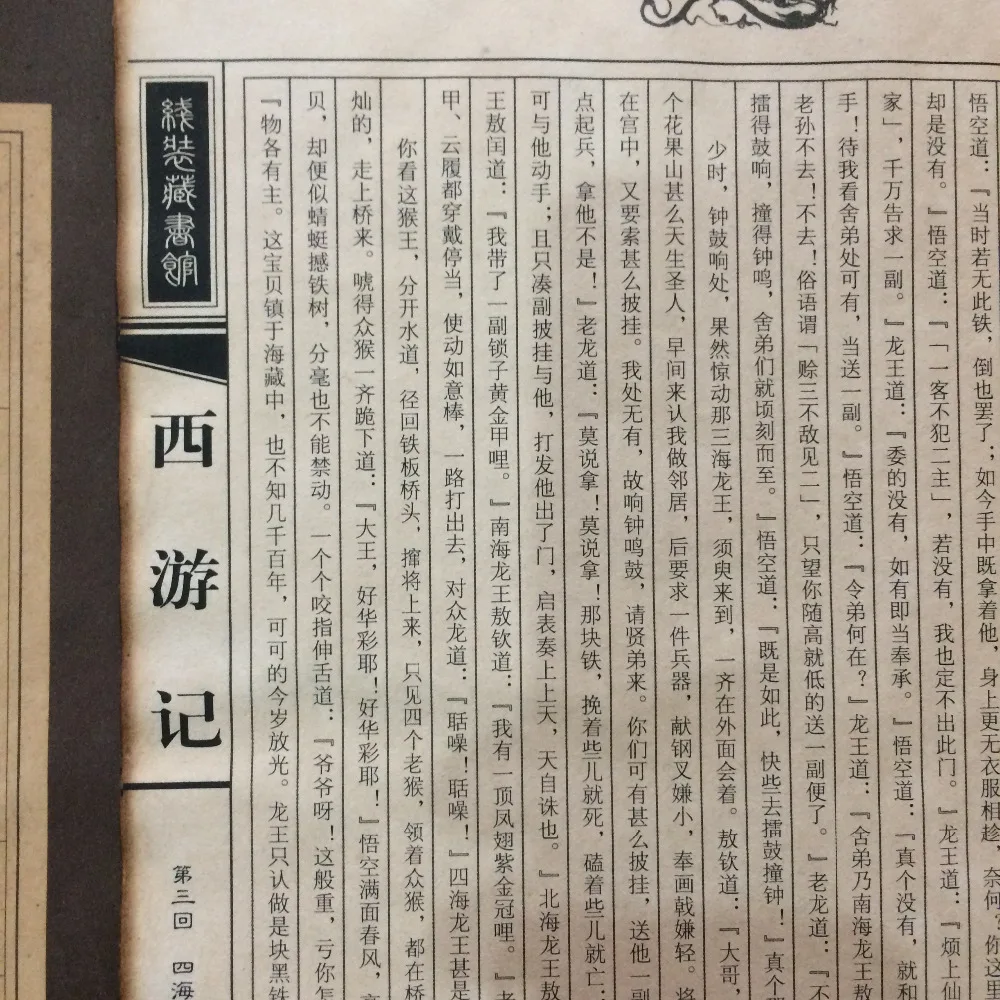 悟空道：『当时若无此铁，倒也罢了；如今手中既拿着他，身上更无衣服相趁，奈何？你这里
却是没有。』悟空道：『「一客不犯二主」，若没有，我也定不出此门。』龙王道：『烦上仙
家」，千万告求一副。』龙王道：『委的没有，如有即当奉承。』悟空道：『真个没有，就和
手！待我看舍弟处可有，当送一副。』悟空道：『令弟何在？』龙王道：『舍弟乃南海龙王敖
老孙不去！不去！俗语谓「赊三不敌见二」，只望你随高就低的送一副便了。』老龙道：『不
擂得鼓响，撞得钟鸣，舍弟们就顷刻而至。』悟空道：『既是如此，快些去擂鼓撞钟！』真个
少时，钟鼓响处，果然惊动那三海龙王，须臾来到，一齐在外面会着。敖钦道：『大哥，
个花果山甚么天生圣人，早间来认我做邻居，后要求一件兵器，献钢叉嫌小，奉画戟嫌轻。将
在宫中，又要索甚么披挂。我处无有，故响钟鸣鼓，请贤弟来。你们可有甚么披挂，送他一副
点起兵，拿他不是！』老龙道：『莫说拿！莫说拿！那块铁，挽着些儿就死，磕着些儿就亡；
可与他动手；且只凑副披挂与他，打发他出了门，启表奏上上天，天自诛也。』北海龙王敖
王敖闰道：『我带了一副锁子黄金甲哩。』南海龙王敖钦道：『我有一顶凤翅紫金冠哩。』老
甲、云履都穿戴停当，使动如意棒，一路打出去，对众龙道：『聒噪！聒噪！』四海龙王甚是
你看这猴王，分开水道，径回铁板桥头，撺将上来，只见四个老猴，领着众猴，都在桥
灿的，走上桥来。唬得众猴一齐跪下道：『大王，好华彩耶！好华彩耶！』悟空满面春风，
贝，却便似蜻蜓撼铁树，分毫也不能禁动。一个个咬指伸舌道：『爷爷呀！这般重，亏你怎
『物各有主。这宝贝镇于海藏中，也不知几千百年，可可的今岁放光。龙王只认做是块黑铁
綫裝藏書館
西游记
第三回 四海